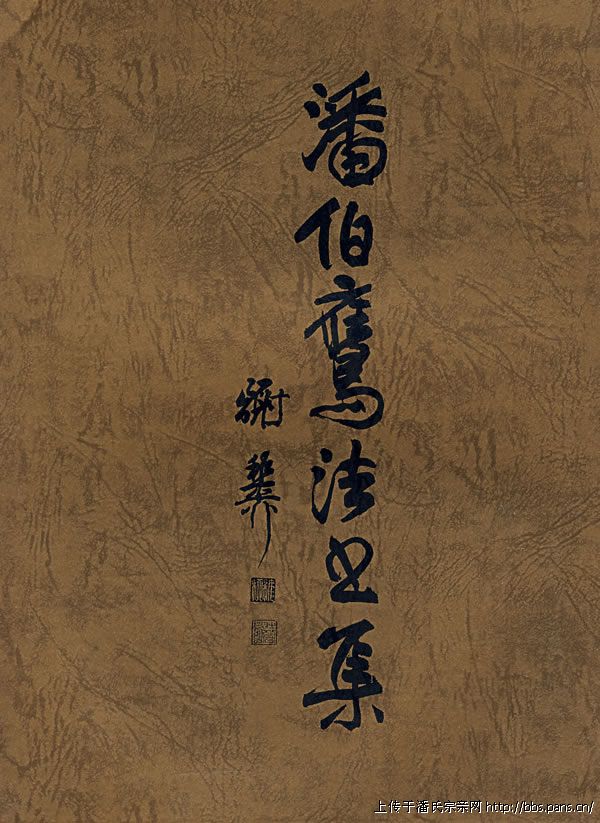 潘伯鷹法书集
謝
上传于潘氏宗亲网 http://bbs.pans.cn/